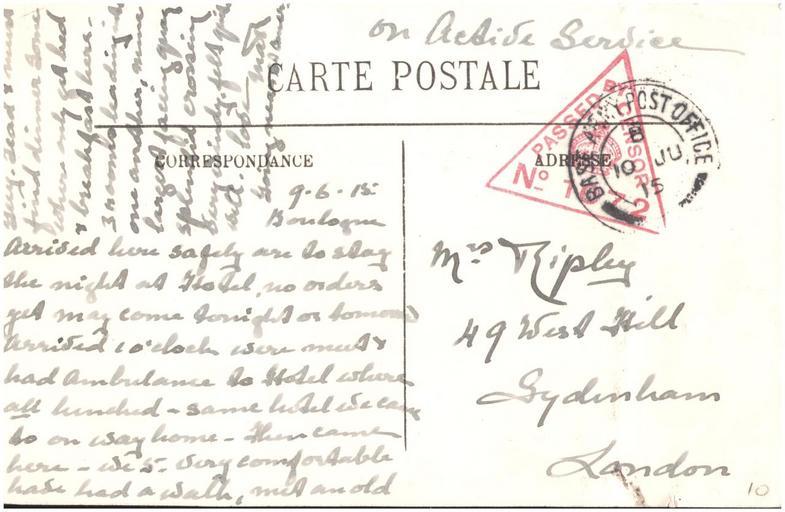 on Active Service
CARTE POSTALE
CORRESPONDANCE
ADRESSE
PASSED BY CENSOR
No
BASE ARMY POST OFFICE
10 JU.
15
9-6-15
Boulogne
Arrived here safely are to stay
the night at Hotel, no orders
yet may come tonight or
Arrived 1 o'clock were met &
had Ambulance to Hotel where
all lunched - same hotel we came
to on way home - then came
here - we 5. very comfortable
have had a walk, met an old
find dinner some
where only get bed
& breakfast here -
3 rooms leading
one another,
splendid crossing
very windy
love
Mrs Ripley
49 West Hill
Sydenham
London
10